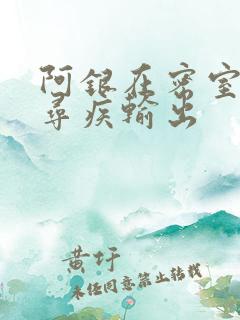 阿银在密室
寻疾输出
黄圩
未经同意禁止转载